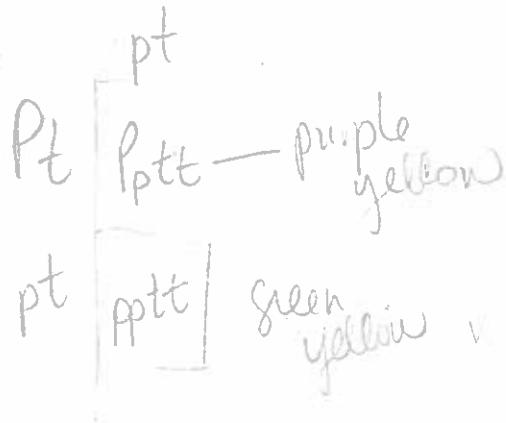 pt
Pt Pptt — purple
yellow
pt pptt green
yellow